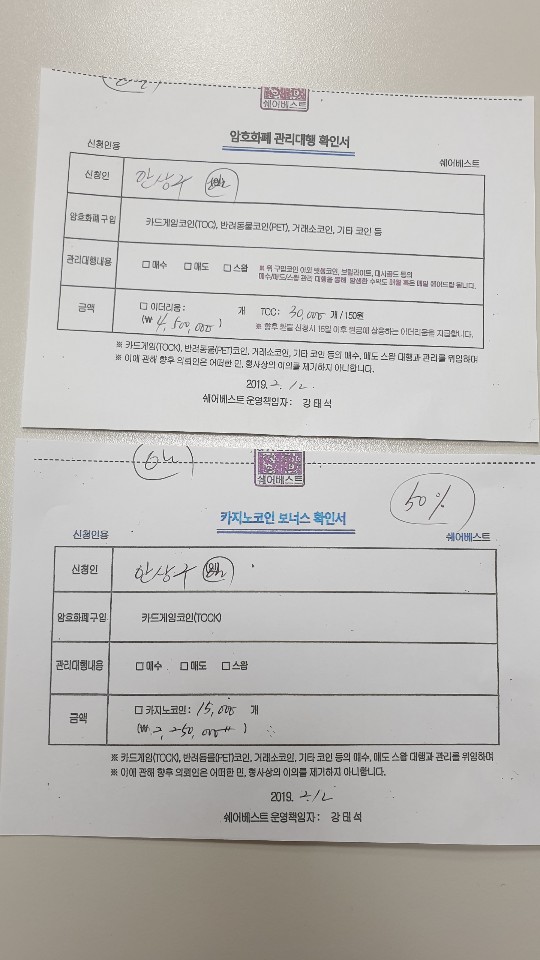 쉐어베스트
암호화폐 관리대행 확인서
신청인용
쉐어베스트
신청인
안상구
암호화폐구입
카드게임코인(TOC), 반려동물코인(PET), 거래소코인, 기타 코인 등
관리대행내용
□ 매수 □ 매도 □ 스왑
※ 위 구입코인 이외 보월라이트, 대시골드 등의
금액
□ 이더리움: 개 TCC: 30,000 개 / 150원
(₩ 4,500,000 )
※ 향후 환불 신청시 15일 이후 현금에 상응하는 이더리움을 지급합니다.
※ 카드게임(TOCK), 반려동물(PET)코인, 거래소코인, 기타 코인 등의 매수, 매도 스왑 대행과 관리를 위임하며
※ 이에 관해 향후 의뢰인은 어떠한 민, 형사상의 이의를 제기하지 아니합니다.
2019. 2. 12.
쉐어베스트 운영책임자: 강태석
쉐어베스트
50%
카지노코인 보너스 확인서
신청인용
쉐어베스트
신청인
안상구
암호화폐구입
카드게임코인(TCCK)
관리대행내용
□ 매수 □ 매도 □ 스왑
금액
□ 카지노코인: 15,000 개
(₩ 2,250,000 )
※ 카드게임(TCCK), 반려동물(PET)코인, 거래소코인, 기타 코인 등의 매수, 매도 스왑 대행과 관리를 위임하며
※ 이에 관해 향후 의뢰인은 어떠한 민, 형사상의 이의를 제기하지 아니합니다.
2019. 2/12
쉐어베스트 운영책임자: 강태석